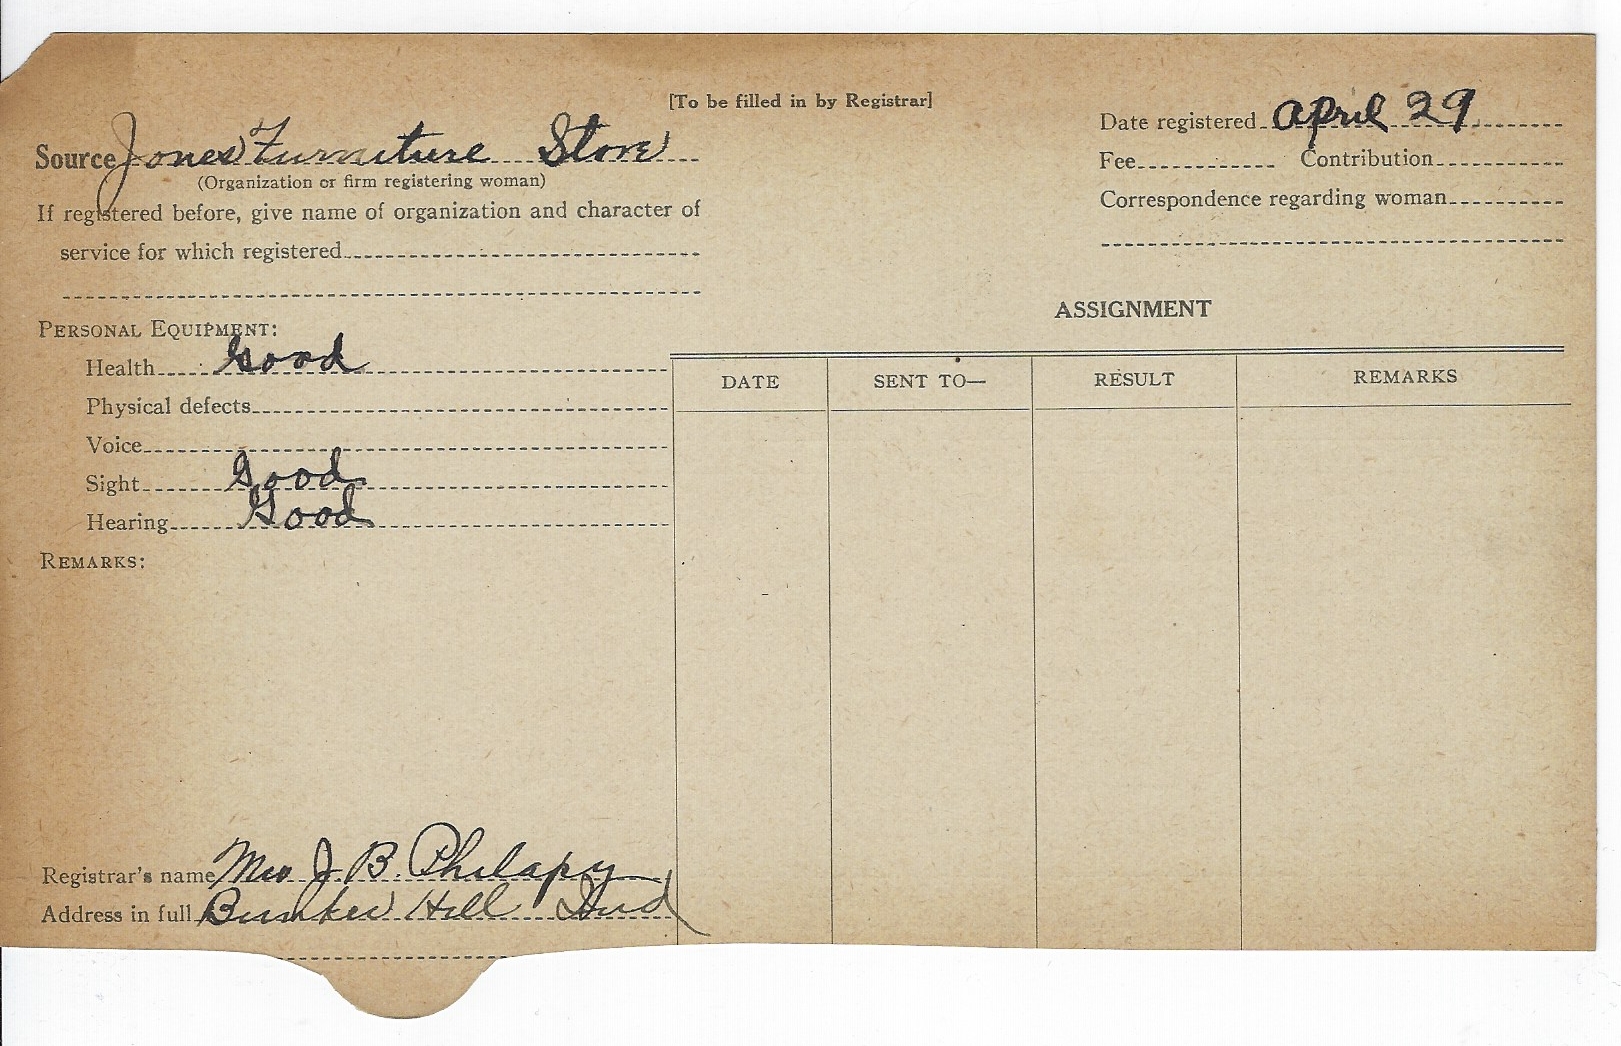 [To be filled in by Registrar]
Source Jones Furniture Store
(Organization or firm registering woman)
If registered before, give name of organization and character of
service for which registered
Date registered April 29
Fee Contribution
Correspondence regarding woman
PERSONAL EQUIPMENT:
Health Good
Physical defects
Voice
Sight Good
Hearing Good
REMARKS:
Registrar's name Mrs J. B. Philapy
Address in full Bunker Hill Ind
ASSIGNMENT
DATE SENT TO— RESULT REMARKS